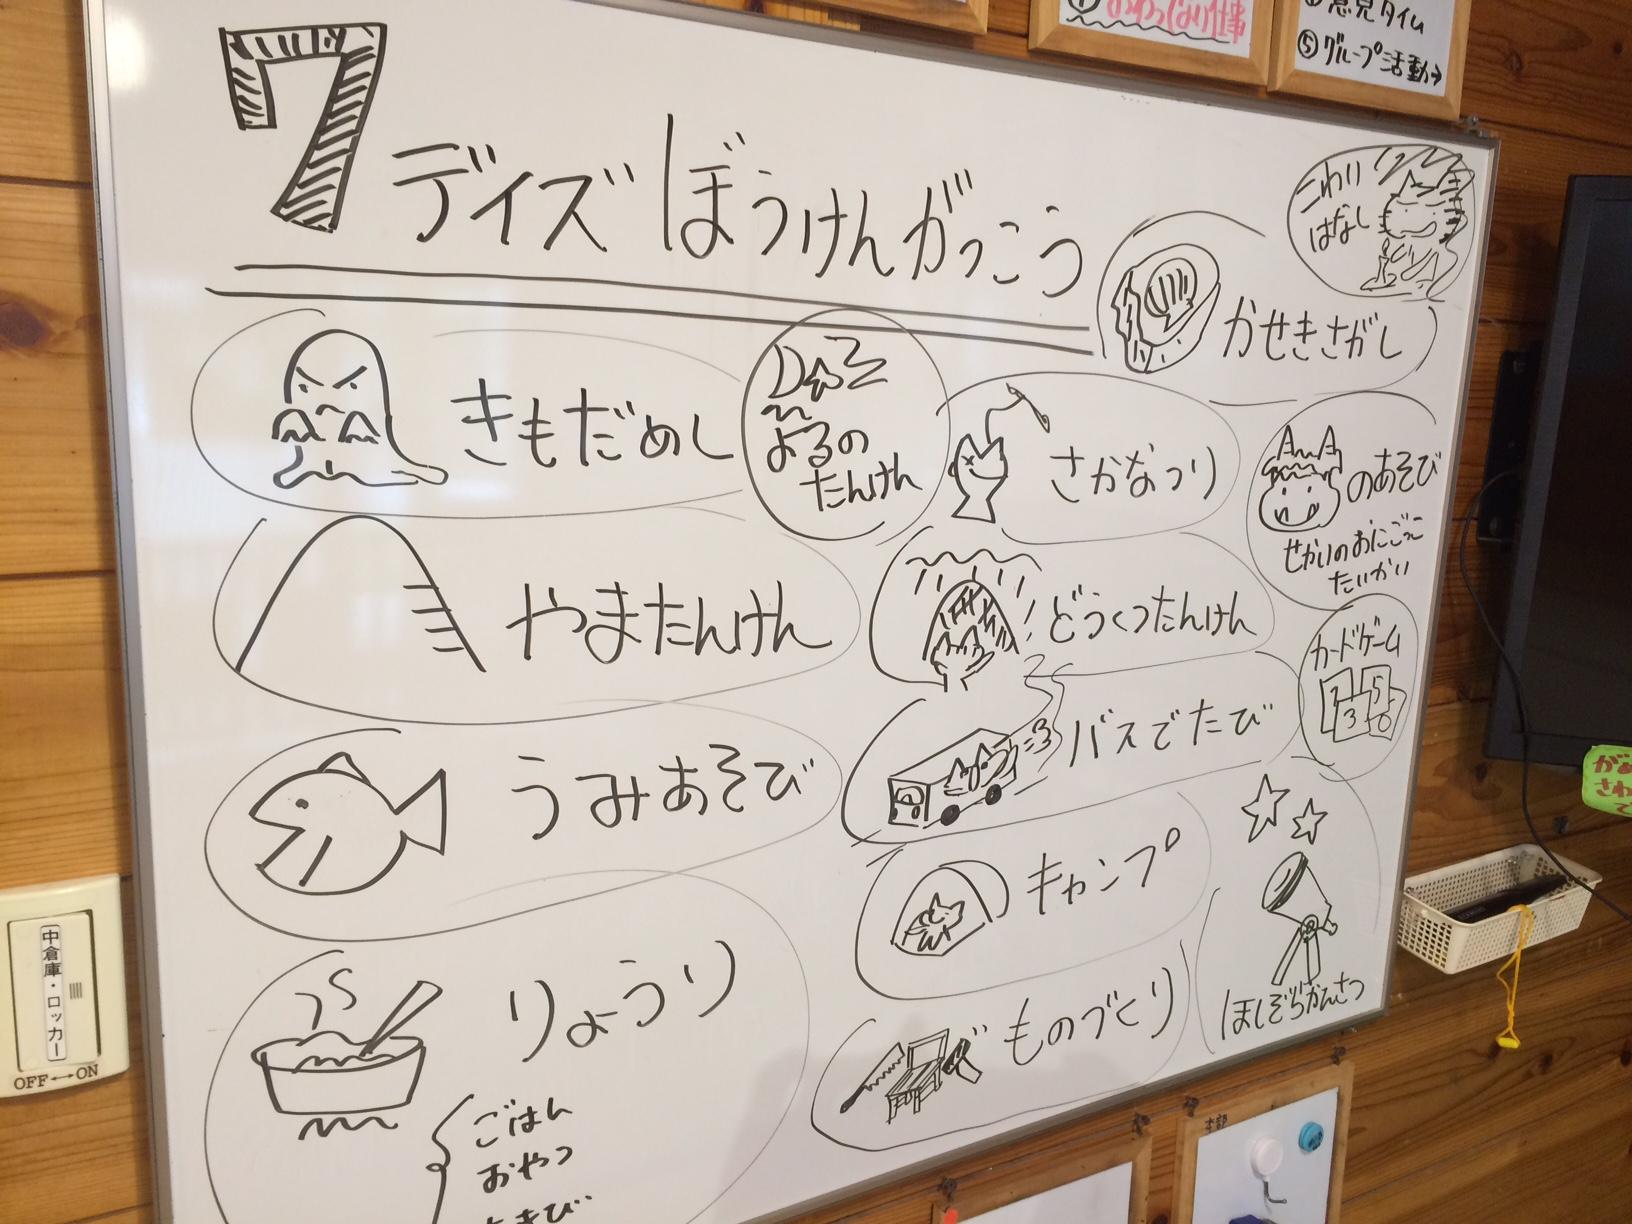 7デイズ ぼうけんがっこう
こわい
はなし
かせきさがし
きもだめし
よるの
たんけん
さかなつり
のあそび
せかいのおにごっこ
たいかい
やまたんけん
どうくつたんけん
カードゲーム
1 5
3 6
うみあそび
バスでたび
キャンプ
りょうり
ごはん
おやつ
ものづくり
ほしぞらかんさつ
意見タイム
⑤グループ活動→
中倉庫・ロッカー
OFF↔ON